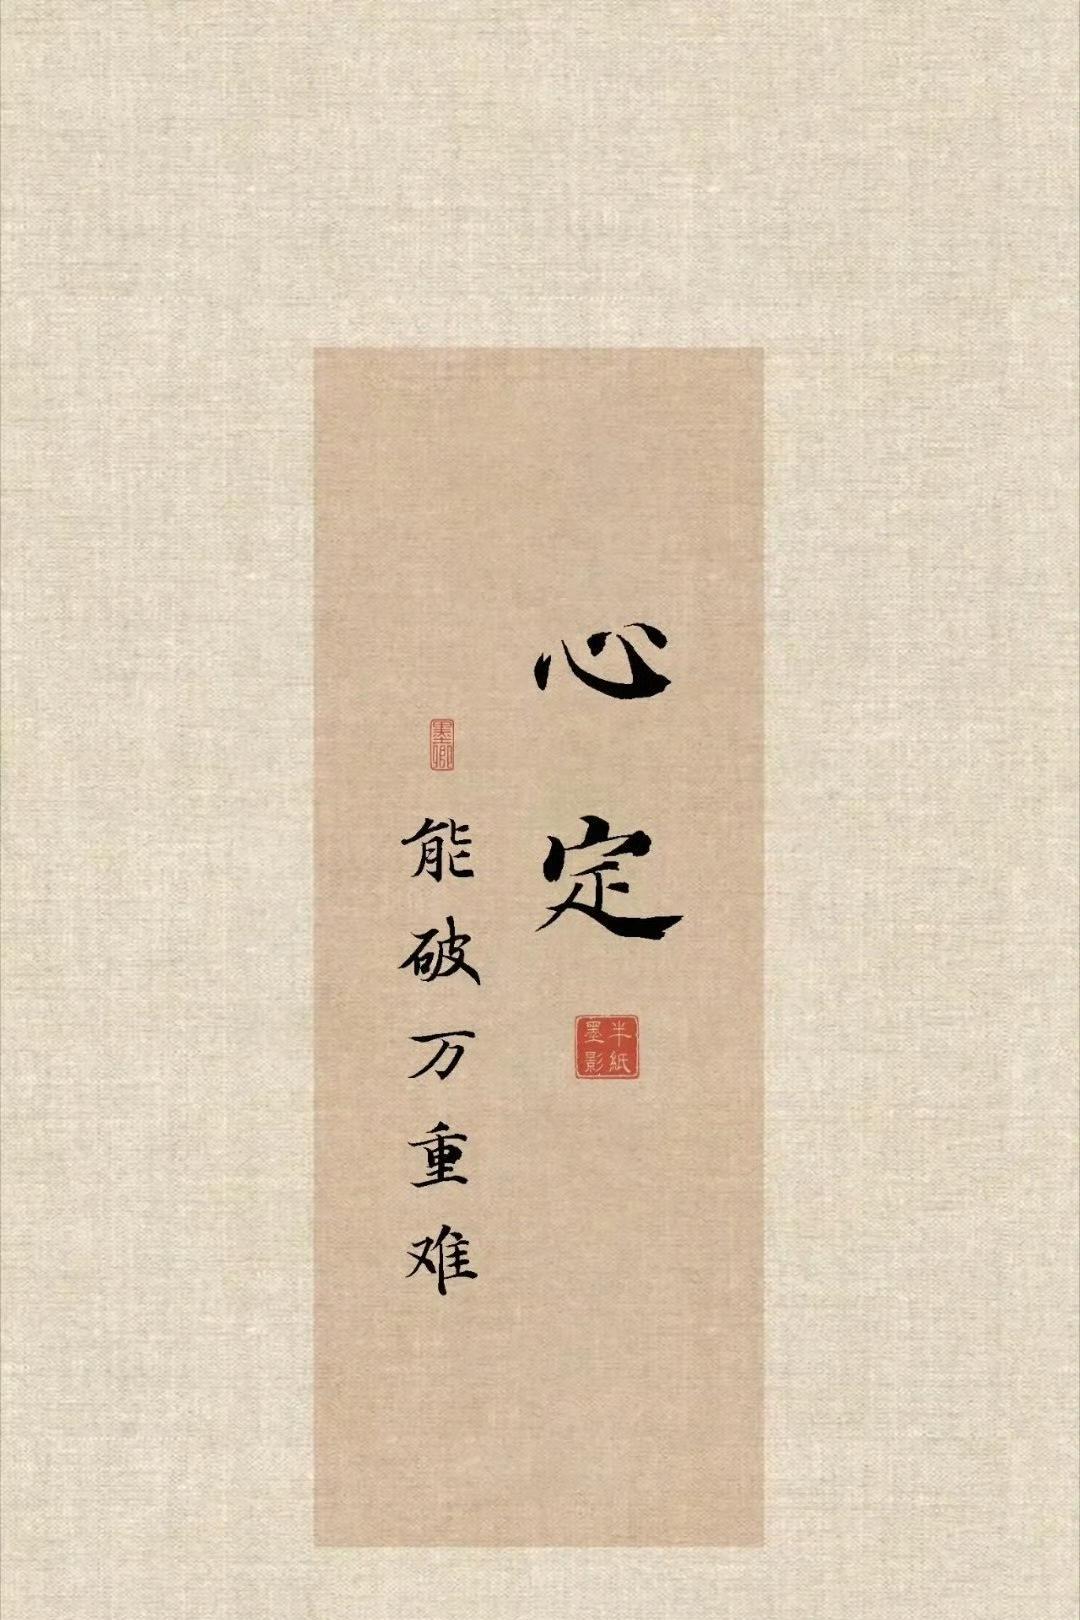 心定
半紙墨影
墨卿
能破万重难